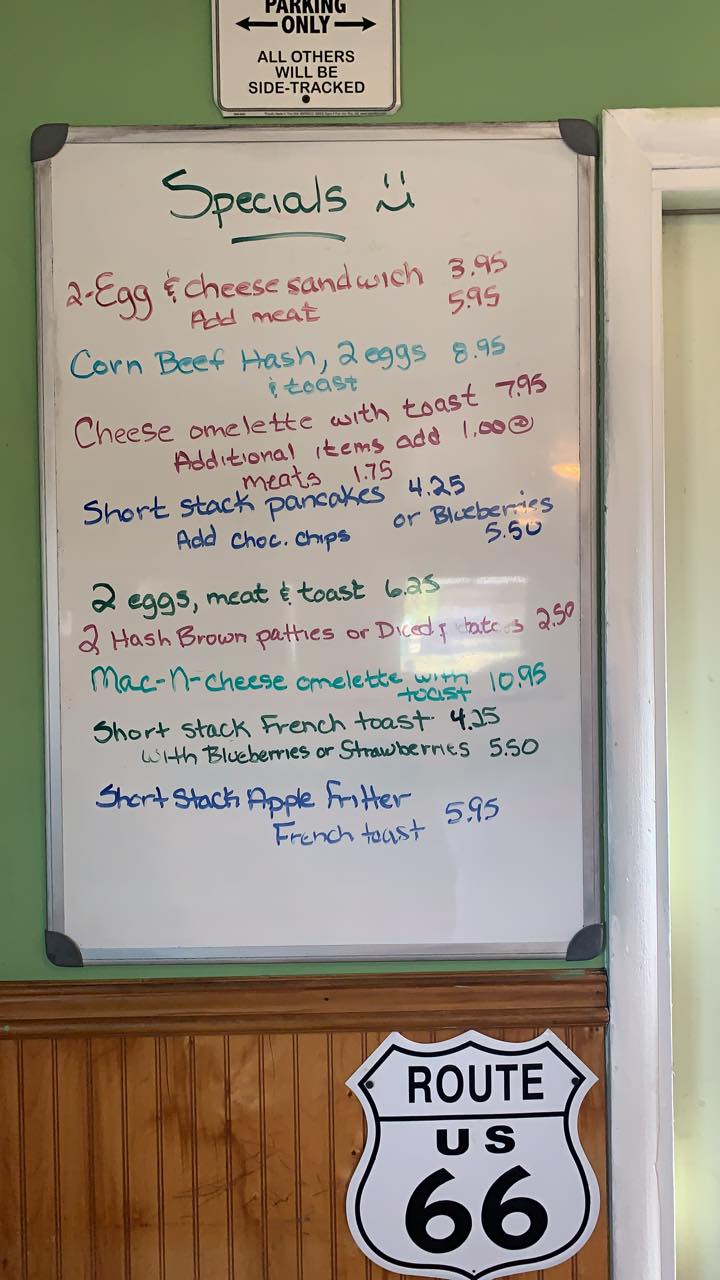 PARKING
ONLY
ALL OTHERS
WILL BE
SIDE-TRACKED
Specials
2-Egg & cheese sandwich 3.95
Add meat 5.95
Corn Beef Hash, 2 eggs 8.95
& toast
Cheese omelette with toast 7.95
Additional items add 1.00
meats 1.75
Short stack pancakes 4.25
Add choc. chips or Blueberries
5.50
2 eggs, meat & toast 6.25
2 Hash Brown patties or Diced 2.50
Mac-N-cheese omelette with 10.95
toast
Short stack French toast
with Blueberries or Strawberries 5.50
Short Stack Apple Fritter
French toast 5.95
ROUTE
US
66